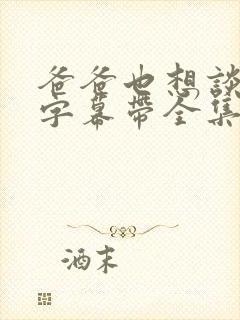 爸爸也想談
字幕帶全集
酒末